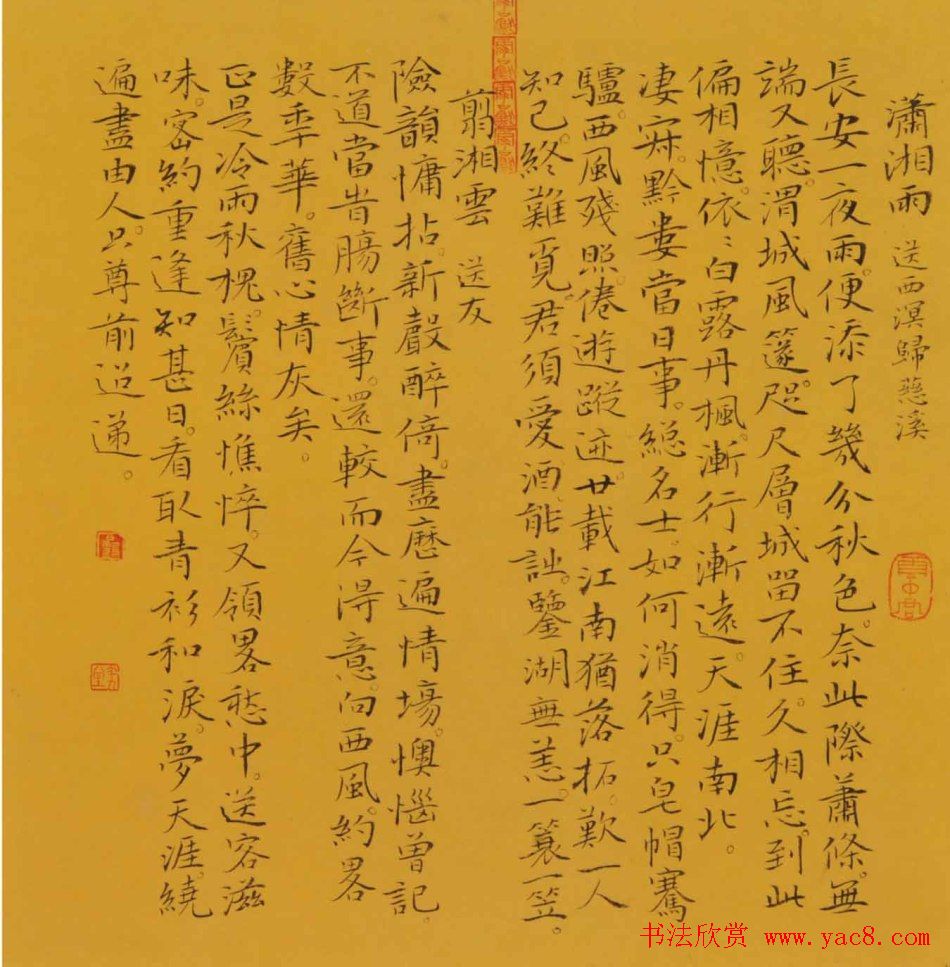 瀟湘雨 送西溟歸慈溪
長安一夜雨。便添了幾分秋色。奈此際蕭條。無
端又聽。渭城風篴。咫尺層城畱不住。久相忘。到此
偏相憶。依〻白露丹楓。漸行漸遠。天涯南北。
凄寂。黔婁當日事。總名士。如何消得。只皂帽蹇
驢。西風殘照。倦遊蹤迹。廿載江南猶落拓。歎一人
知己。終難覓。君須愛酒能詩。鑒湖無恙。一蓑一笠。
翦湘雲 送友
險韻慵拈。新聲醉倚。盡歷遍情場。懊惱曾記。
不道當旹腸斷事。還較而今得意。向西風。約畧
數年華。舊心情灰矣。
正是冷雨秋槐。鬢絲憔悴。又領畧愁中。送客滋
味。密約重逢知甚日。看取青衫和淚。夢天涯。繞
遍盡由人。只尊前迢递。
书法欣赏 www.yac8.com